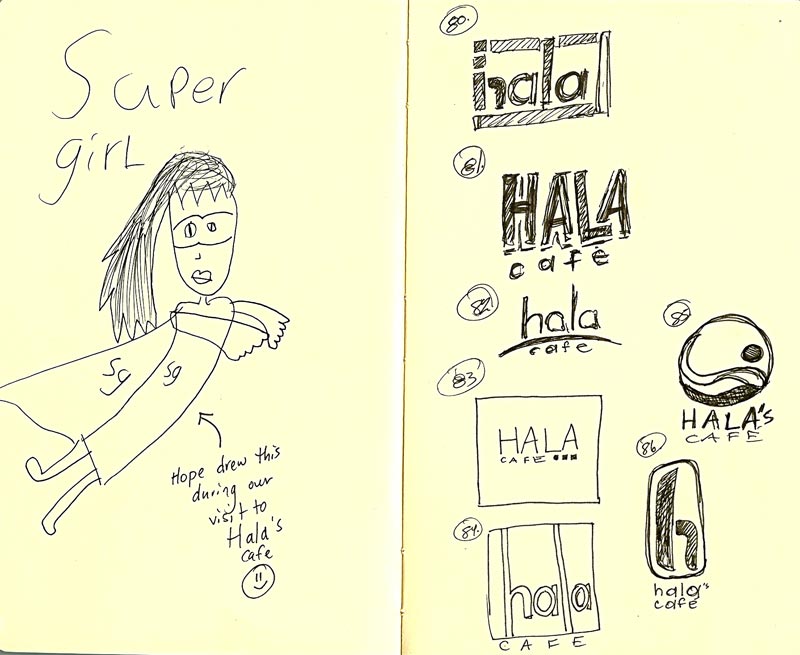 Super
girl
Sg
Sg
Hope drew this
during our
visit to
Hala's
cafe
80.
hala
81.
HALA
cafe
82.
hala
cafe
83
HALA
CAFE
84.
hala
CAFE
85
HALA's
CAFE
86
h
hala's
cafe